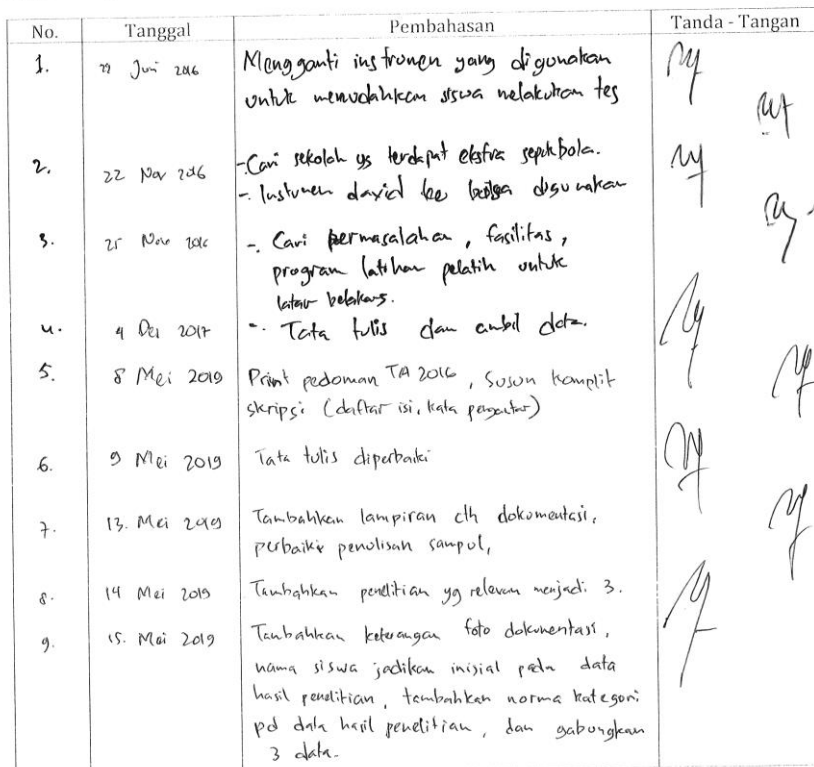 No. Tanggal Pembahasan Tanda - Tangan
1. Juni 2016 Mengganti instrumen yang digunakan
untuk memudahkan siswa melakukan tes
2. 22 Nov 2016 - Cari sekolah yg terdapat ekstra sepakbola.
- Instrumen david lee digunakan
3. 25 Nov 2016 - Cari permasalahan, fasilitas,
program latihan pelatih untuk
latar belakang.
4. 4 Des 2017 - Tata tulis dan ambil data.
5. 8 Mei 2019 Print pedoman TA 2016, Susun komplit
skripsi (daftar isi, kata pengantar)
6. 9 Mei 2019 Tata tulis diperbaiki
7. 13. Mei 2019 Tambahkan lampiran clh dokumentasi,
perbaiki penulisan sampul,
8. 14 Mei 2019 Tambahkan penelitian yg relevan menjadi 3.
9. 15. Mei 2019 Tambahkan keterangan foto dokumentasi,
nama siswa jadikan inisial pada data
hasil penelitian, tambahkan norma kategori
pd data hasil penelitian, dan gabungkan
3 data.